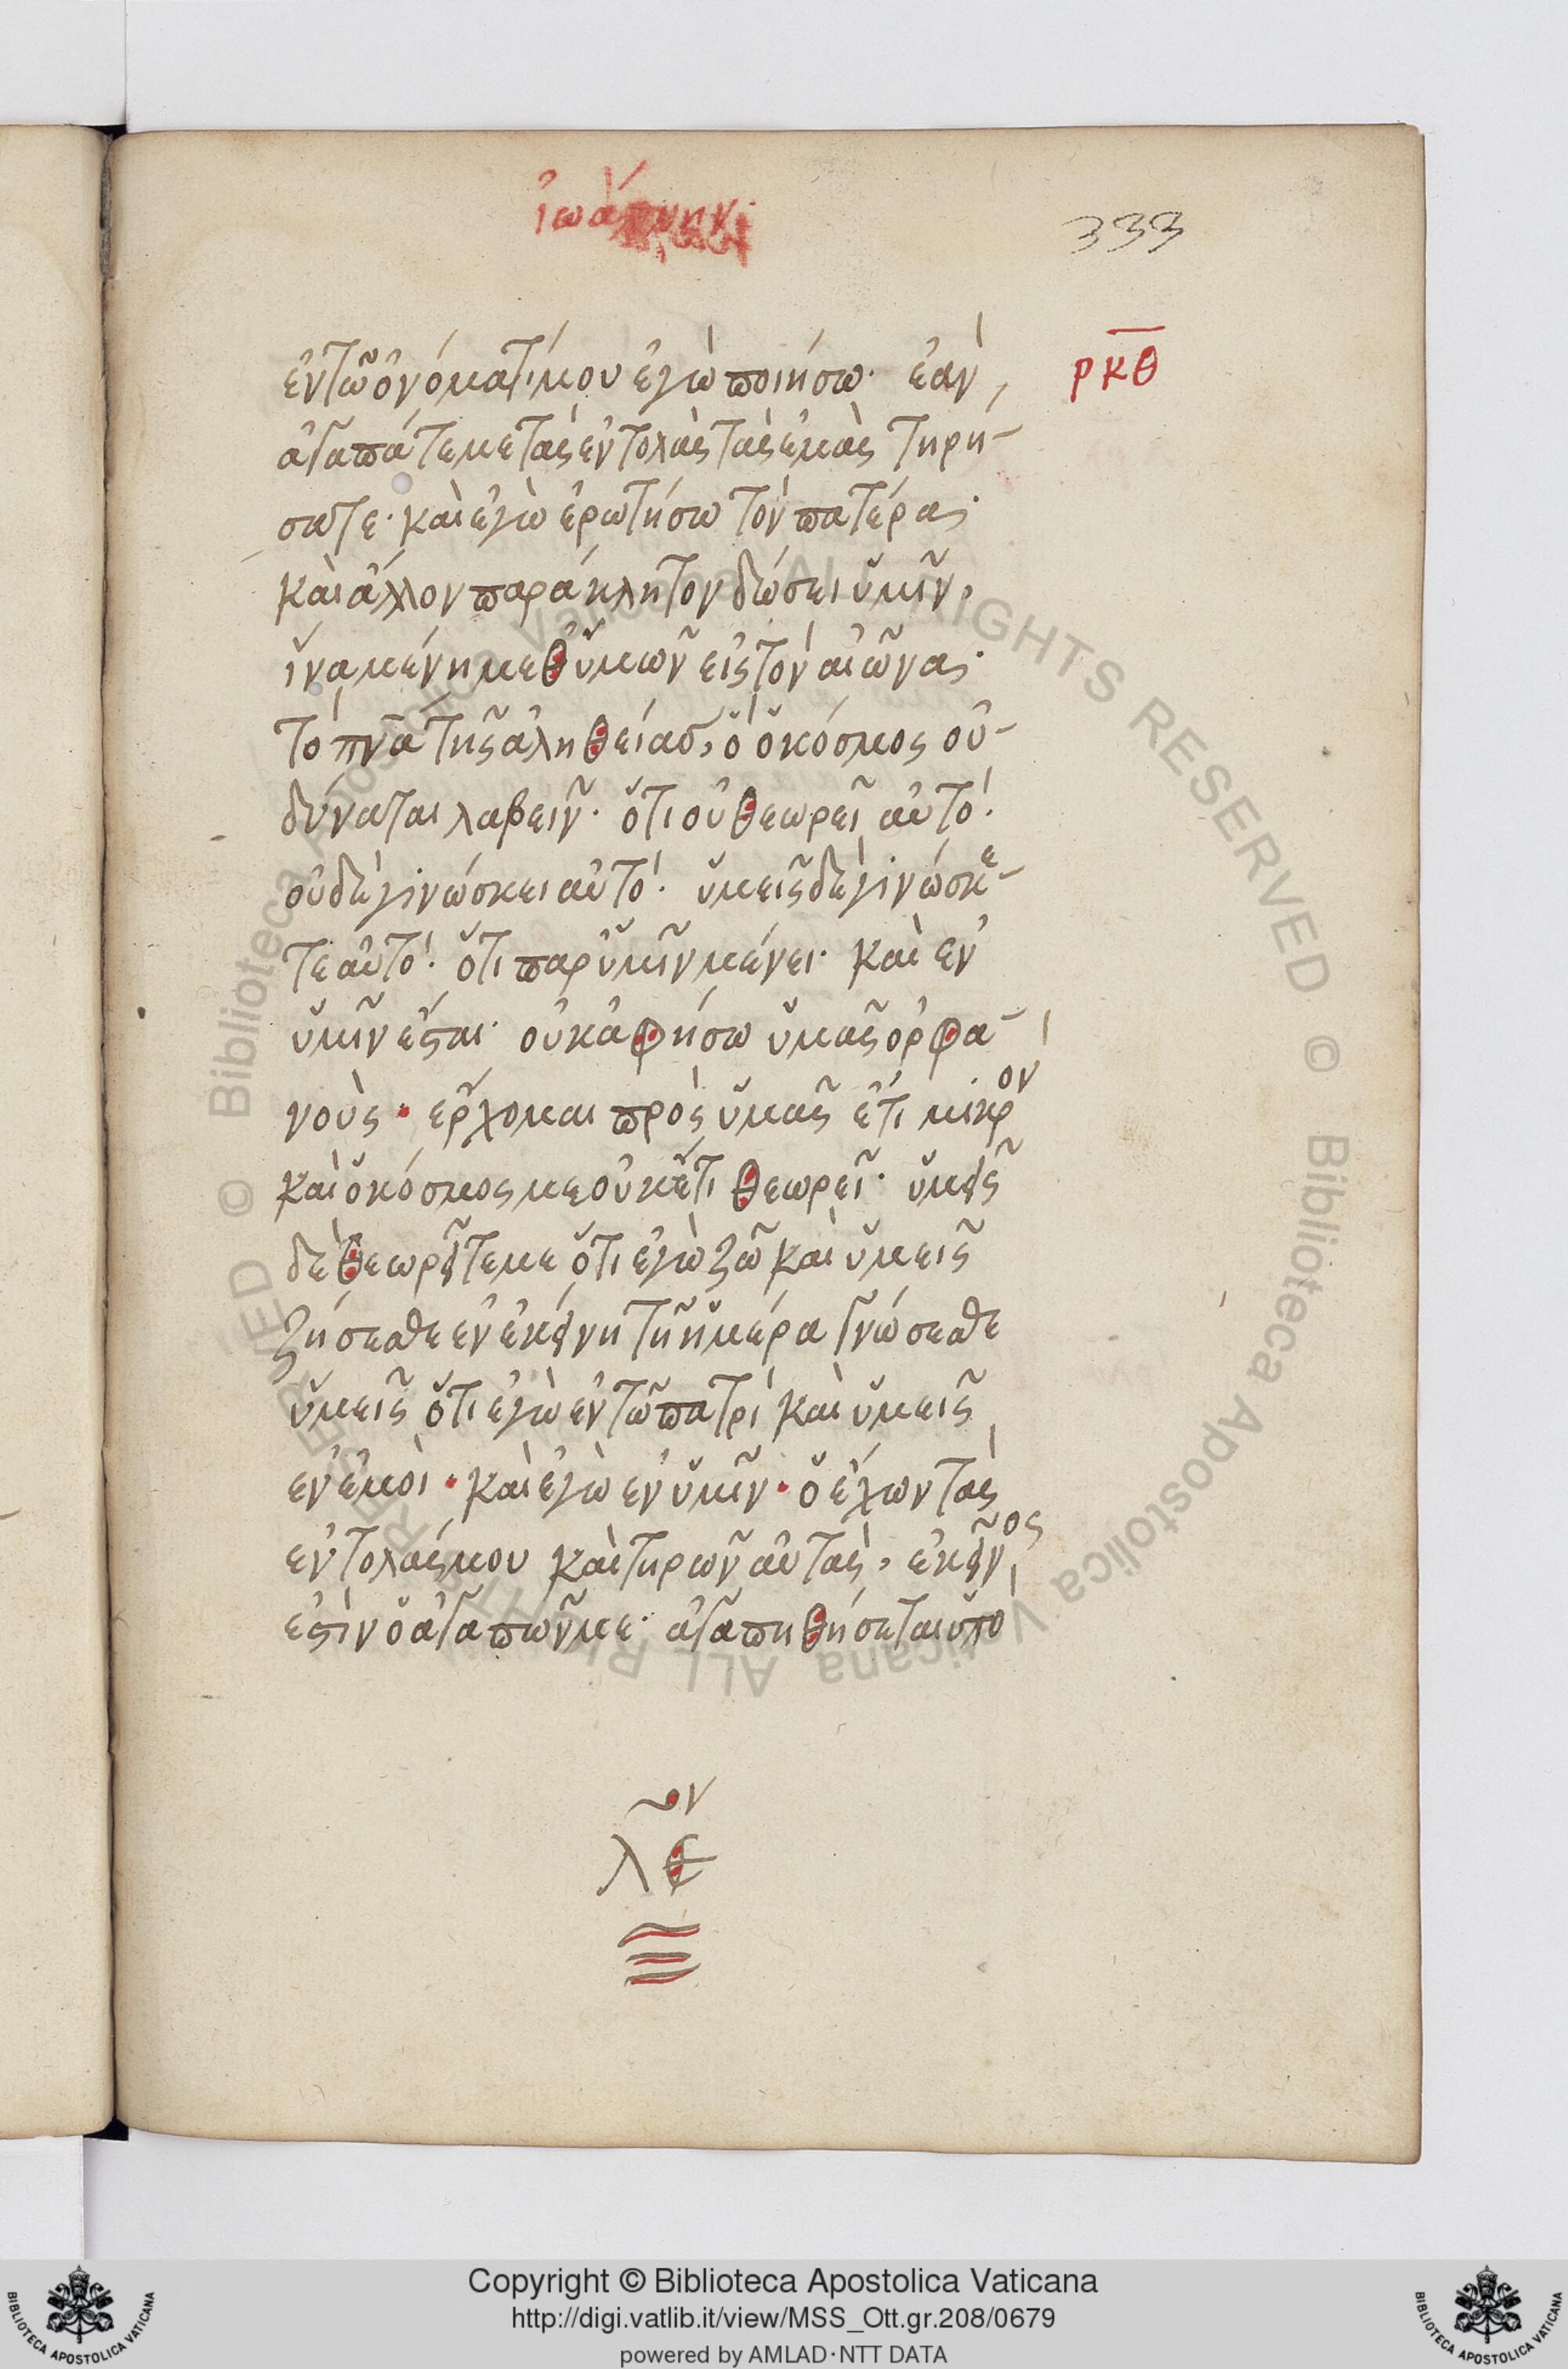 333
ρκθ
ἐν τῶ ὀνόματί μου ἐγὼ ποιήσω· ἐὰν
ἀγαπάτε με τὰς ἐντολὰς τὰς ἐμὰς τηρη-
σατε· καὶ ἐγὼ ἐρωτήσω τὸν πατέρα·
καὶ ἄλλον παράκλητον δώσει ὑμῖν,
ἵνα μένη μεθ ὑμῶν εἰς τὸν αἰῶνα·
τὸ πνα τῆς ἀληθείας, ὃ ὁ κόσμος οὐ-
δύναται λαβεῖν· ὅτι οὐ θεωρεῖ αὐτό·
οὐδὲ γινώσκει αὐτό· ὑμεῖς δὲ γινώσκε-
τε αὐτό· ὅτι παρ ὑμῖν μένει· καὶ ἐν
ὑμῖν ἔσται· οὐκ ἀφήσω ὑμᾶς ὀρφα-
νοὺς· ἔρχομαι πρὸς ὑμᾶς ἔτι μικρὸν
καὶ ὁ κόσμος με οὐκ ἔτι θεωρεῖ· ὑμεῖς
δὲ θεωρεῖτε με ὅτι ἐγὼ ζῶ καὶ ὑμεῖς
ζήσεσθε ἐν ἐκείνη τῆ ἡμέρα γνώσεσθε
ὑμεῖς ὅτι ἐγὼ ἐν τῶ πατρὶ καὶ ὑμεῖς
ἐν ἐμοὶ· καὶ ἐγὼ ἐν ὑμῖν· ὁ ἔχων τὰς
ἐντολάς μου καὶ τηρῶν αὐτὰς, ἐκεῖνος
ἐστὶν ὁ ἀγαπῶν με· ἀγαπηθήσεται ὑπὸ
© Biblioteca Apostolica Vaticana ALL RIGHTS RESERVED © Biblioteca Apostolica Vaticana ALL RIGHTS RESERVED
Copyright © Biblioteca Apostolica Vaticana
http://digi.vatlib.it/view/MSS_Ott.gr.208/0679
powered by AMLAD·NTT DATA
BIBLIOTECA APOSTOLICA VATICANA
BIBLIOTECA APOSTOLICA VATICANA